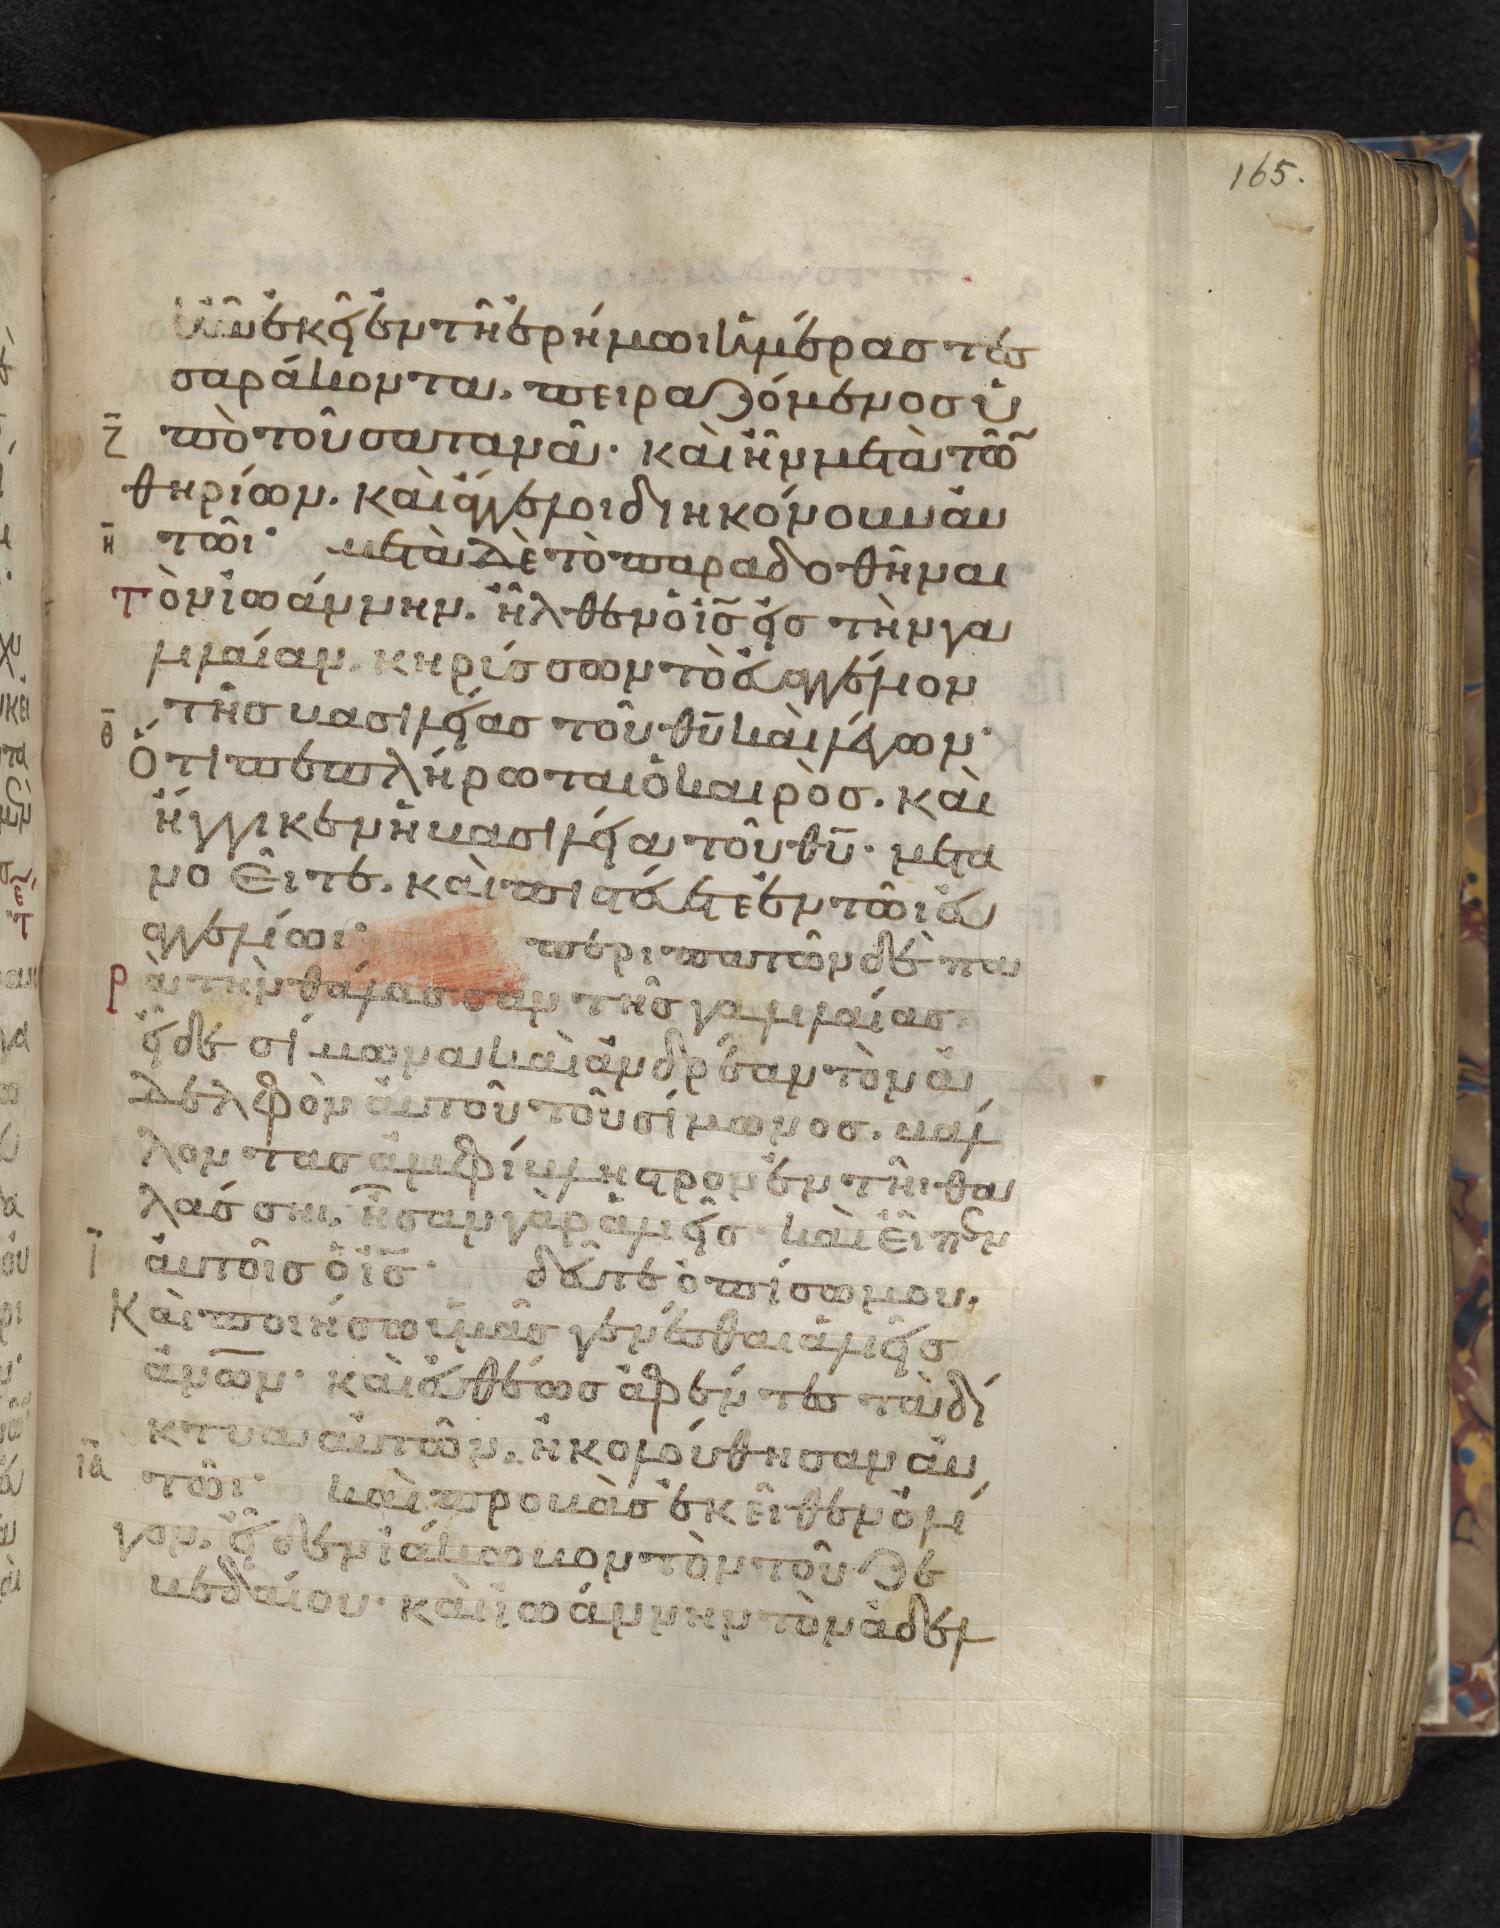 165.
ἦν ἐκεῖ ἐν τῆ ἐρήμωι ἡμέρας τεσ
σαράκοντα. πειραζόμενος ὑ
ζ πὸ τοῦ σατανᾶ· καὶ ἦν μετὰ τῶ
θηρίων. καὶ ἄγγελοι διηκόνουν αὐ
η τῶι· μετὰ δὲ τὸ παραδοθῆναι
τὸν ἰωάννην. ἦλθεν ὁ ις εἰς τὴν γα
λιλαίαν. κηρύσσων τὸ εὐαγγέλιον
τῆς βασιλείας τοῦ θυ καὶ λέγων·
θ Ὅτι πεπλήρωται ὁ καιρὸς. καὶ
ἤγγικεν ἡ βασιλεία τοῦ θυ· μετα
νοεῖτε. καὶ πιστεύετε ἐν τῶι εὐ
αγγελίωι· περιπατῶν δὲ πα
ρὰ τὴν θάλασσαν τῆς γαλιλαίας.
εἶδε σίμωνα καὶ ἀνδρέαν τὸν ἀ
δελφὸν αὐτοῦ τοῦ σίμωνος. βάλ
λοντας ἀμφίβληστρον ἐν τῆι θα
λάσσηι. ἦσαν γὰρ ἁλιεῖς· καὶ εἶπεν
ι αὐτοῖς ὁ ις· δεῦτε ὀπίσω μου.
Καὶ ποιήσω ὑμᾶς γενέσθαι ἁλιεῖς
ἀνων· καὶ εὐθέως ἀφέντες τὰ δί
κτυα αὐτῶν. ἠκολούθησαν αὐ
ια τῶι· καὶ προβὰς ἐκεῖθεν ὀλί
γον. εἶδεν ἰάκωβον τὸν τοῦ ζε
βεδαίου· καὶ ἰωάννην τὸν ἀδελ